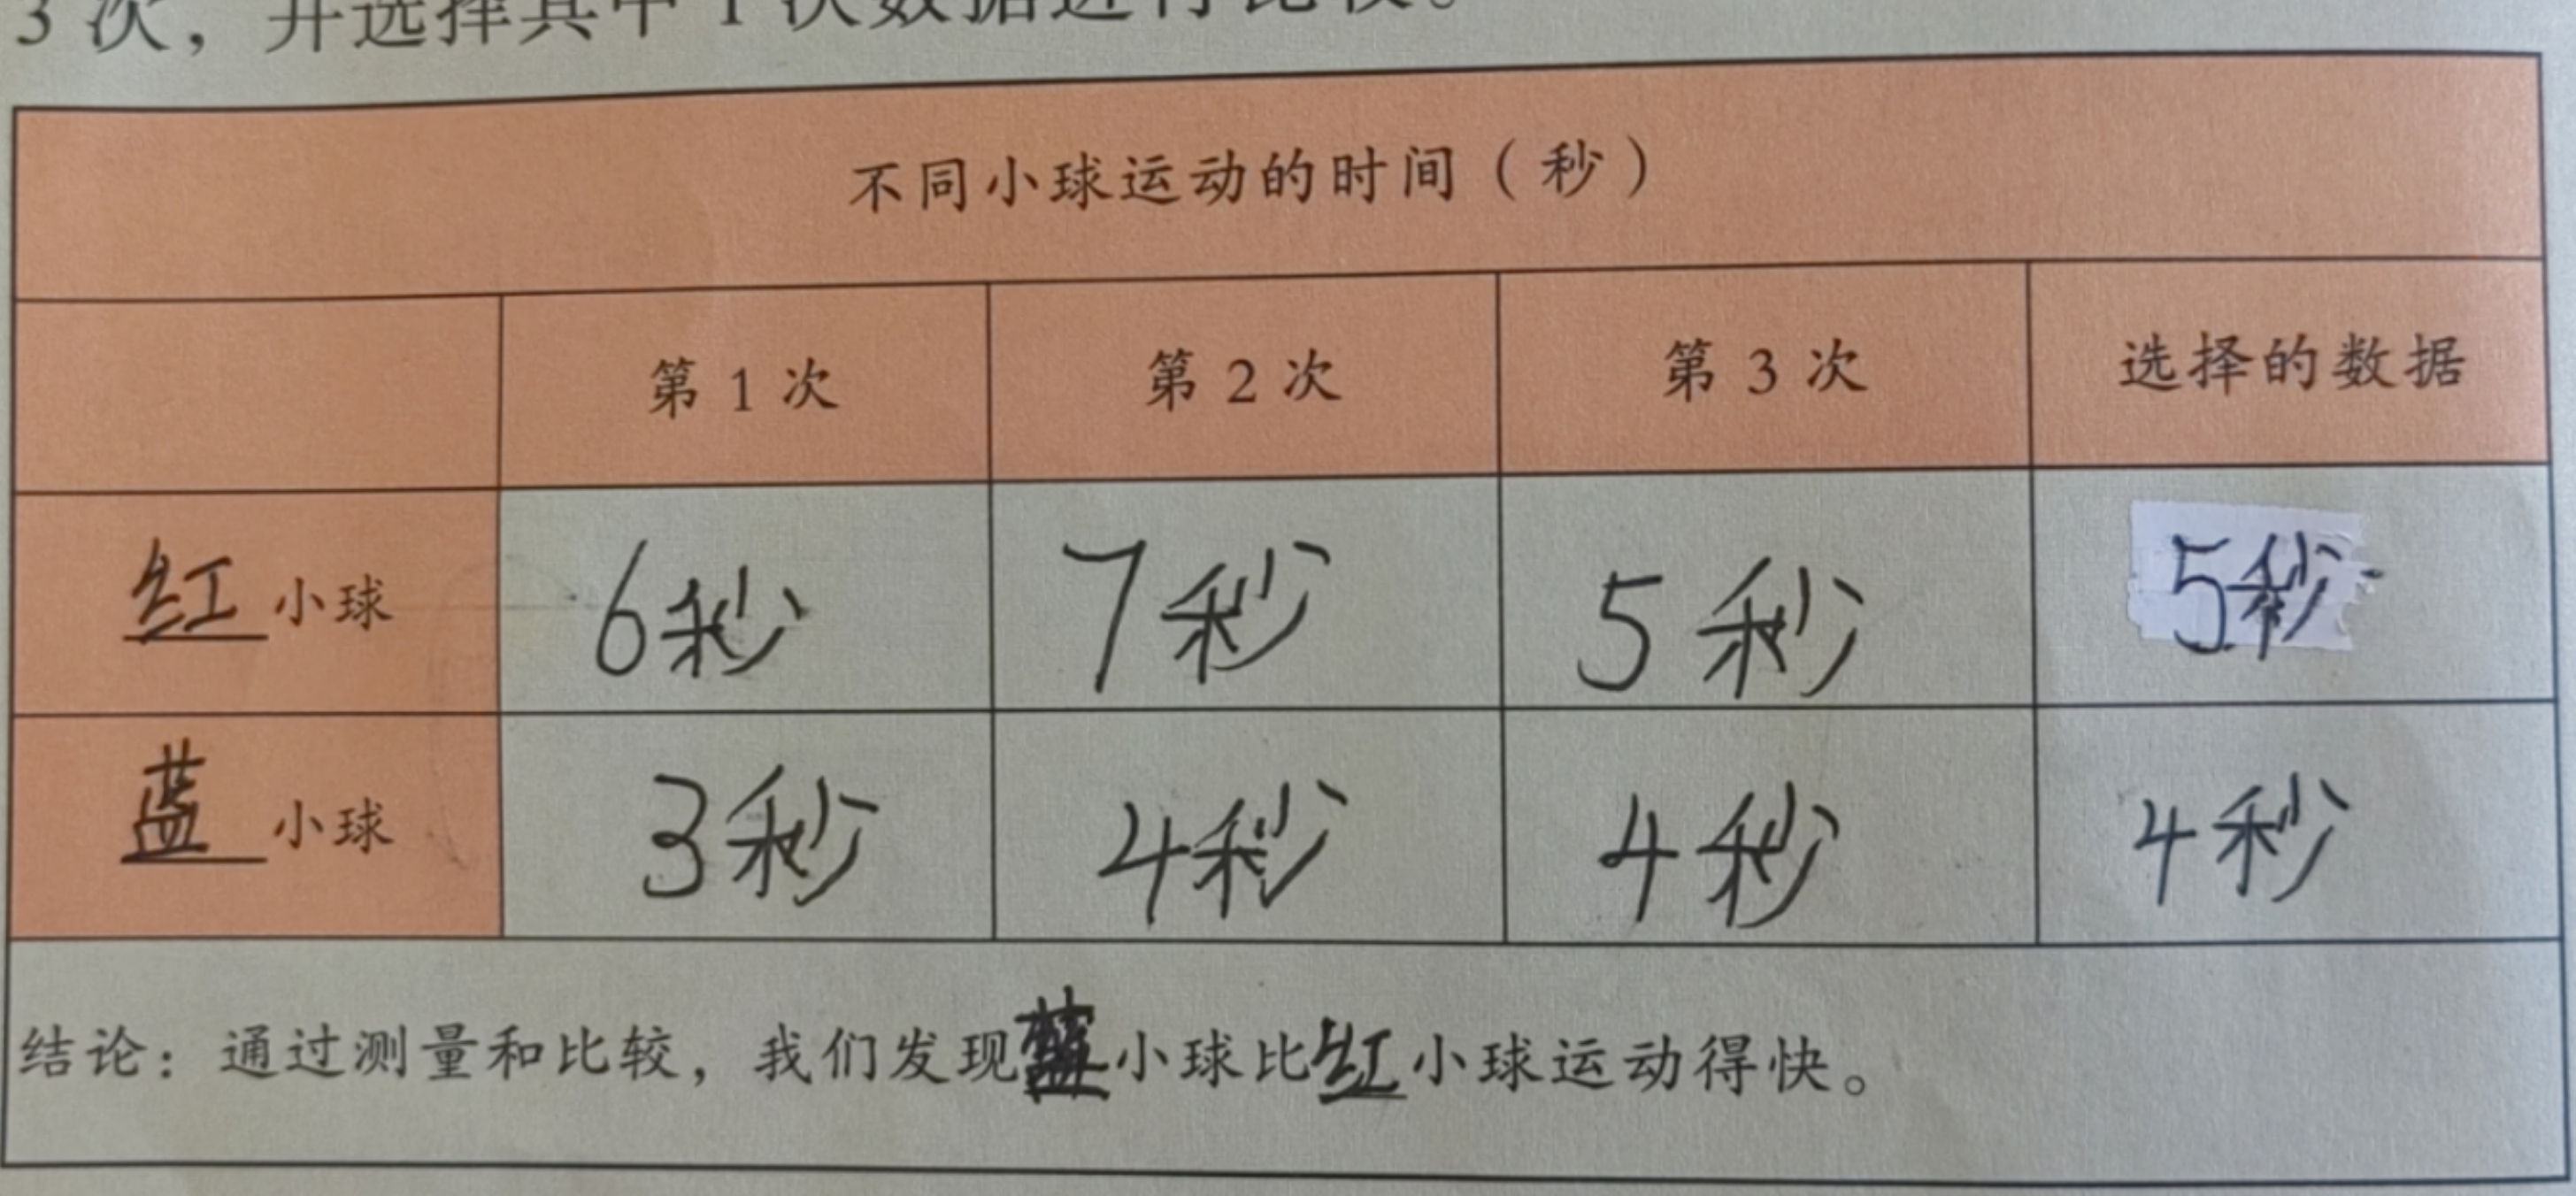 3 次，并选择其中 1 次数据进行比较。
不同小球运动的时间（秒）
第 1 次 第 2 次 第 3 次 选择的数据
红 小球 6秒 7秒 5秒 5秒
蓝 小球 3秒 4秒 4秒 4秒
结论：通过测量和比较，我们发现蓝小球比红小球运动得快。